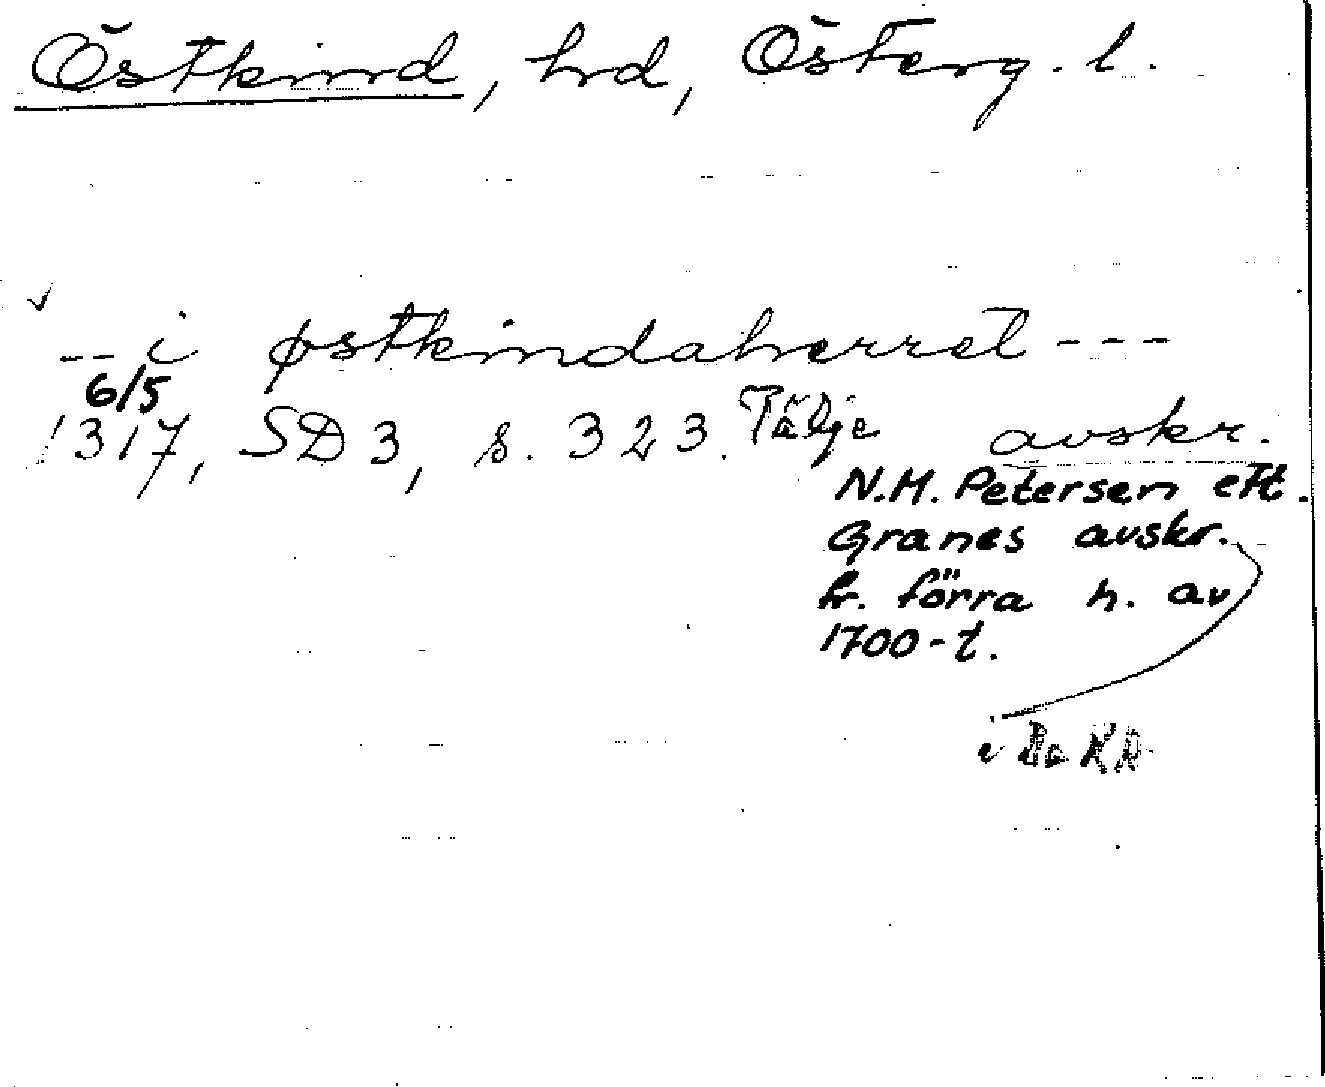 Östkind, hrd, Österg. l.
-- i østkindaherret ---
6/5
1317, SD 3, s. 323. Tälje avskr.
N.M. Petersen eft.
Granes avskr.
fr. förra h. av
1700-t.
i Da RA